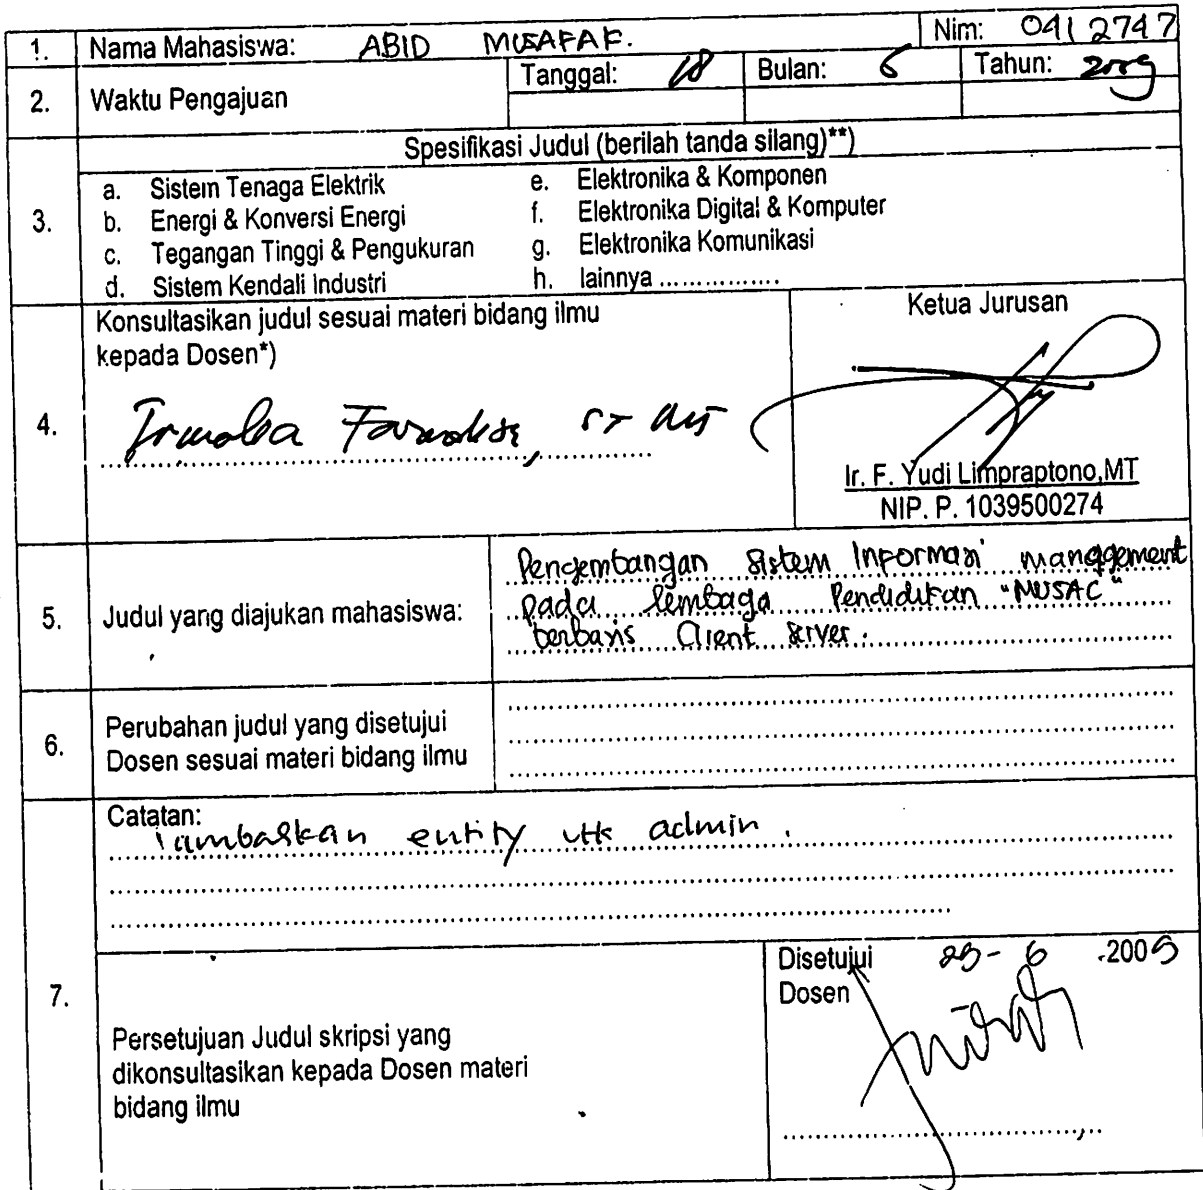 1. Nama Mahasiswa: ABID MUSAFAK. Nim: 0412747
2. Waktu Pengajuan Tanggal: 18 Bulan: 6 Tahun: 2009
3. Spesifikasi Judul (berilah tanda silang)**)
a. Sistem Tenaga Elektrik
b. Energi & Konversi Energi
c. Tegangan Tinggi & Pengukuran
d. Sistem Kendali Industri
e. Elektronika & Komponen
f. Elektronika Digital & Komputer
g. Elektronika Komunikasi
h. lainnya ................
4. Konsultasikan judul sesuai materi bidang ilmu
kepada Dosen*)
Ketua Jurusan
Ir. F. Yudi Limpraptono,MT
NIP. P. 1039500274
5. Judul yang diajukan mahasiswa:
Pengembangan Sistem Informasi management
pada lembaga Pendidikan "MUSAC"
berbasis Client server.
6. Perubahan judul yang disetujui
Dosen sesuai materi bidang ilmu
7. Catatan:
Tambahkan entity utk admin.
Persetujuan Judul skripsi yang
dikonsultasikan kepada Dosen materi
bidang ilmu
Disetujui 25-6-2009
Dosen